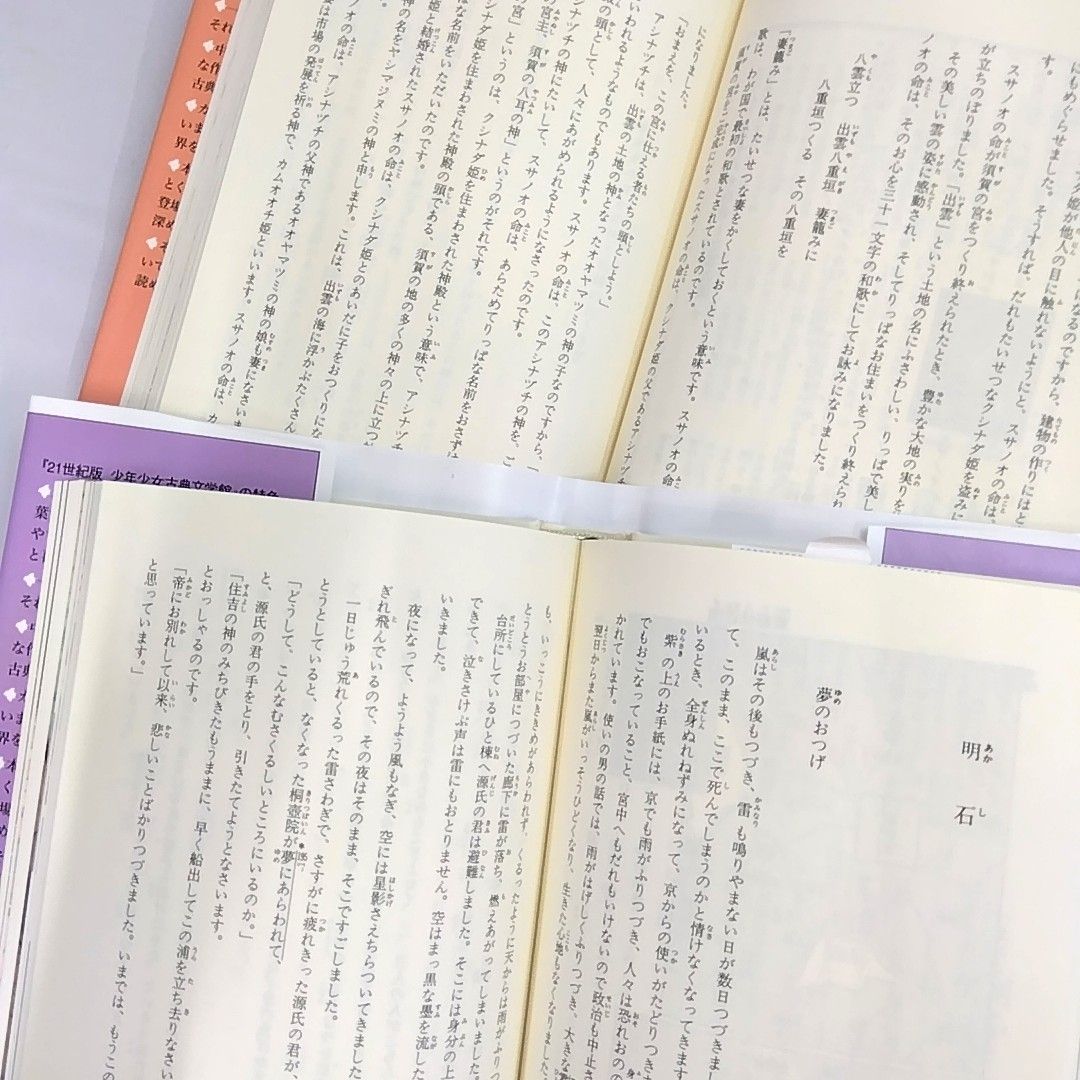 にもめぐらせました。そうすれば、だれもたいせつなクシナダ姫を盗みに
す。
スサノオの命が須賀の宮をつくり終えられたとき、豊かな大地の実りを
が立ちのぼりました。『出雲』という土地の名にふさわしい、りっぱで美し
その美しい雲の姿に感動され、そしてりっぱなお住まいをつくり終えられ
ノオの命は、そのお心を三十一文字の和歌にしてお詠みになりました。
八雲立つ 出雲八重垣 妻籠みに
八重垣つくる その八重垣を
『妻籠み』とは、たいせつな妻をかくしておくという意味です。スサノオの
歌は、わが国で最初の和歌とされているのです。
になりました。
「おまえを、この宮に仕える者たちの頭としよう。」
アシナヅチは、出雲の土地の神となったオオヤマツミの神の子なのですから、
いわれるようなものでもあります。スサノオの命は、このアシナヅチの神を、こ
殿の頭として、人々にあがめられるようになさったのです。
アシナヅチの神にたいして、スサノオの命は、あらためてりっぱな名前をおさずけ
の宮主、須賀の八耳の神」というのがそれです。
の宮」というのは、クシナダ姫を住まわされた神殿という意味で、アシナヅチ
姫を住まわされた神殿の頭である、須賀の地の多くの神々の上に立つ
な名前をいただいたのです。
姫と結婚されたスサノオの命は、クシナダ姫とのあいだに子をおつくりにな
の神の名をヤシマジヌミの神と申します。これは、出雲の海に浮かぶたくさん
アシナヅチの父神であるオオヤマツミの神の娘も妻になさいま
は市場の発展を祈る神で、カムオオチ姫といいます。スサノオの命は、カ
『21世紀版 少年少女古典文学館』の特色
明石
夢のおつげ
嵐はその後もつづき、雷も鳴りやまない日が数日つづきまし
て、このまま、ここで死んでしまうのかと情けなくなってきます
いるとき、全身ぬれねずみになって、京からの使いがたどりつきま
紫の上のお手紙には、京でも雨がふりつづき、人々は恐れおのの
でもおこなっていること、宮中へもだれもいけないので政治も中止さ
かれています。使いの男の話では、雨がはげしくふりつづき、大きな
翌日からまた嵐がいっそうひどくなり、生きた心地もなくなりました
も、いっこうにききめがあらわれず、くるったように天からは雨がふりつ
とうとうお部屋につづいた廊下に雷が落ち、燃えあがってしまいました。
台所にしているひと棟へ源氏の君は避難しました。そこには身分の上
できて、泣きさけぶ声は雷にもおとりません。空はまっ黒な墨を流した
いきました。
夜になって、ようよう風もなぎ、空には星影さえちらついてきました
ぎれ飛んでいるので、その夜はそのまま、そこですごしました。
一日じゅう荒れくるった雷さわぎで、さすがに疲れきった源氏の君が、
とうとしていると、なくなった桐壺院が夢にあらわれて、
「どうして、こんなむさくるしいところにいるのか。」
と、源氏の君の手をとり、引きたてようとなさいます。
「住吉の神のみちびきたもうままに、早く船出してこの浦を立ち去りなさい
とおっしゃるのです。
「帝にお別れして以来、悲しいことばかりつづきました。いまでは、もうこの
と思っています。」